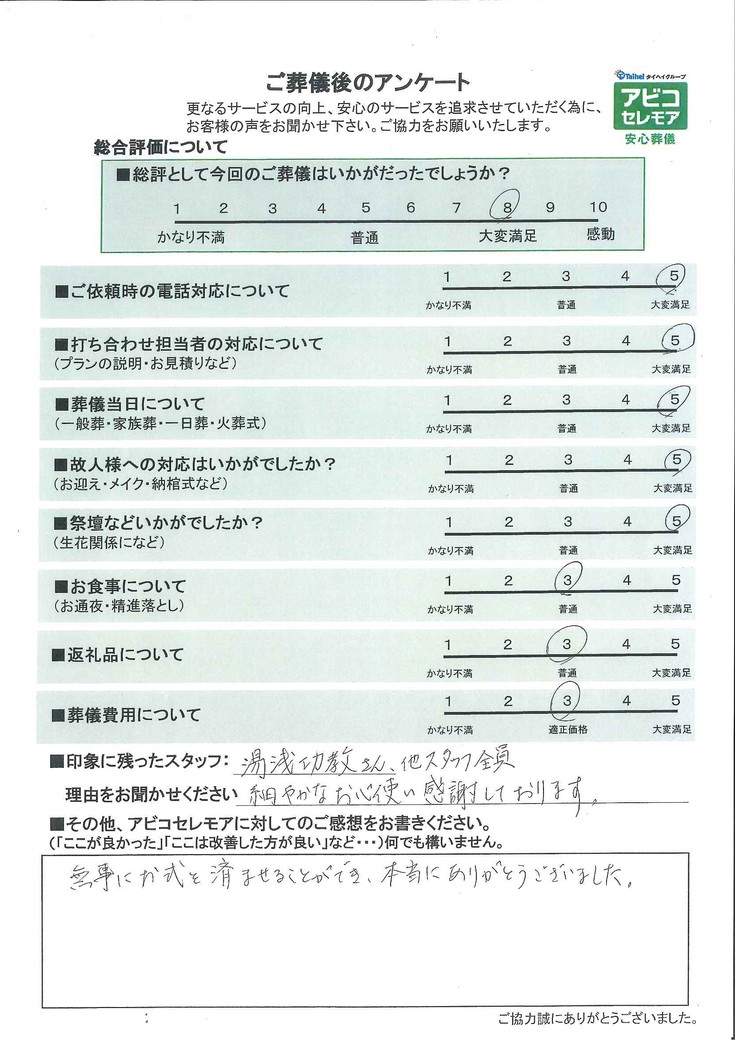 ご葬儀後のアンケート
Taihei タイヘイグループ
アビコ
セレモア
安心葬儀
更なるサービスの向上、安心のサービスを追求させていただく為に、
お客様の声をお聞かせ下さい。ご協力をお願いいたします。
総合評価について
■総評として今回のご葬儀はいかがだったでしょうか？
1 2 3 4 5 6 7 8 9 10
かなり不満 普通 大変満足 感動
■ご依頼時の電話対応について
1 2 3 4 5
かなり不満 普通 大変満足
■打ち合わせ担当者の対応について
(プランの説明・お見積りなど)
1 2 3 4 5
かなり不満 普通 大変満足
■葬儀当日について
(一般葬・家族葬・一日葬・火葬式)
1 2 3 4 5
かなり不満 普通 大変満足
■故人様への対応はいかがでしたか？
(お迎え・メイク・納棺式など)
1 2 3 4 5
かなり不満 普通 大変満足
■祭壇などいかがでしたか？
(生花関係になど)
1 2 3 4 5
かなり不満 普通 大変満足
■お食事について
(お通夜・精進落とし)
1 2 3 4 5
かなり不満 普通 大変満足
■返礼品について
1 2 3 4 5
かなり不満 普通 大変満足
■葬儀費用について
1 2 3 4 5
かなり不満 適正価格 大変満足
■印象に残ったスタッフ： 湯浅功教さん、他スタッフ全員
理由をお聞かせください 細やかなお心使い感謝しております。
■その他、アビコセレモアに対してのご感想をお書きください。
(「ここが良かった」「ここは改善した方が良い」など・・・)何でも構いません。
無事にお式を済ませることができ、本当にありがとうございました。
ご協力誠にありがとうございました。